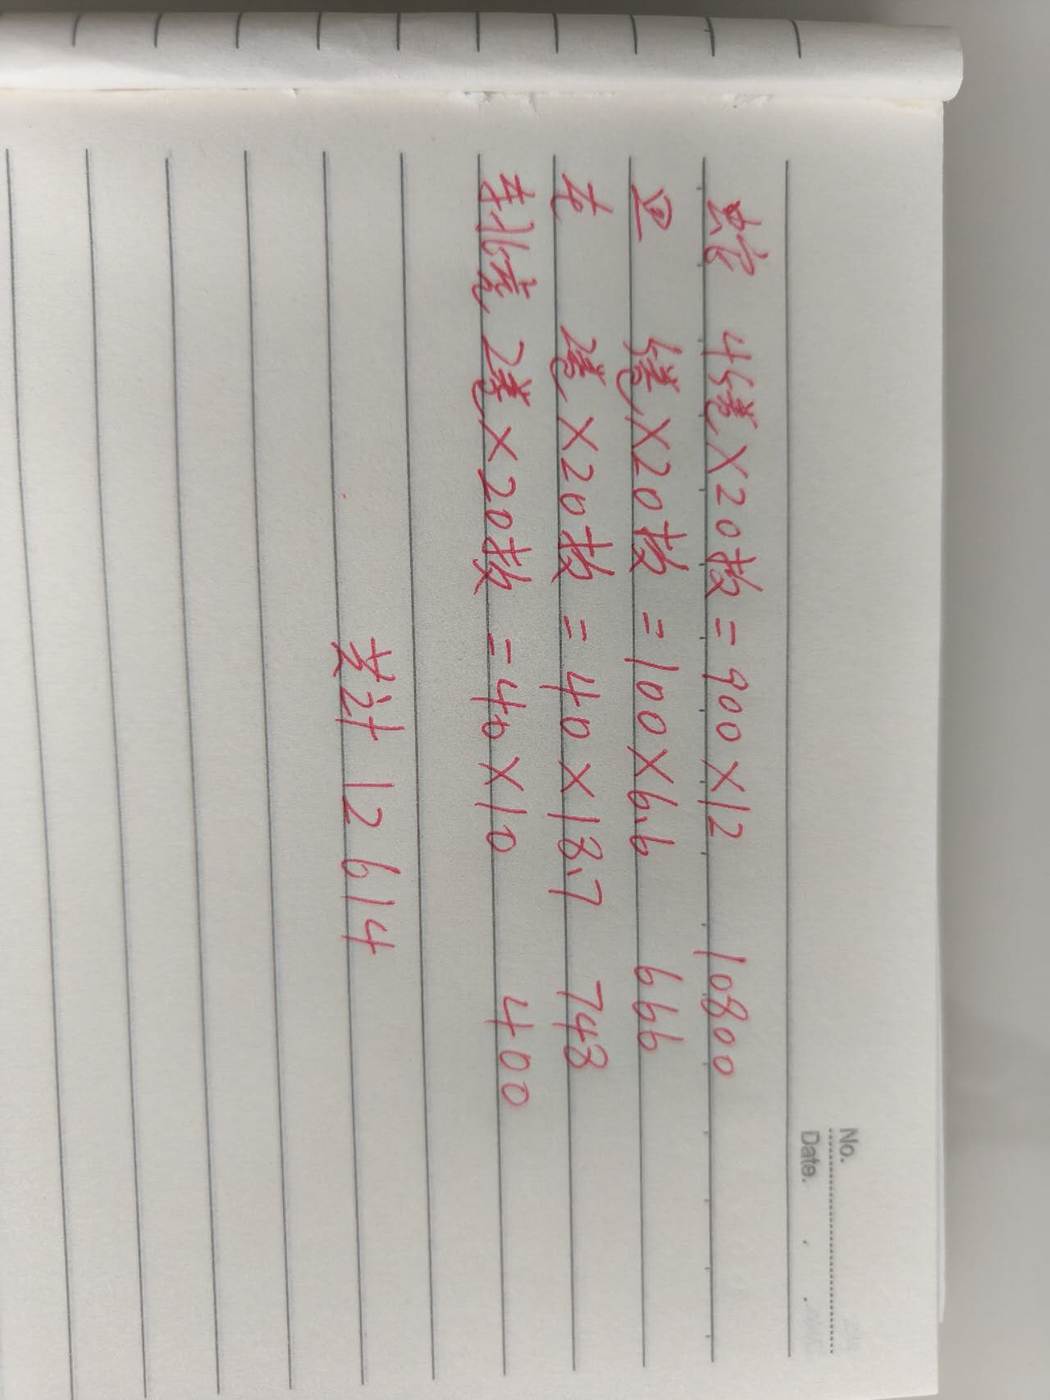 No.
Date.
蛇 45卷×20枚=900×12 10800
卫 5卷×20枚=100×6.6 666
龙 2卷×20枚=40×18.7 748
2卷×20枚=40×10 400
共计 12614